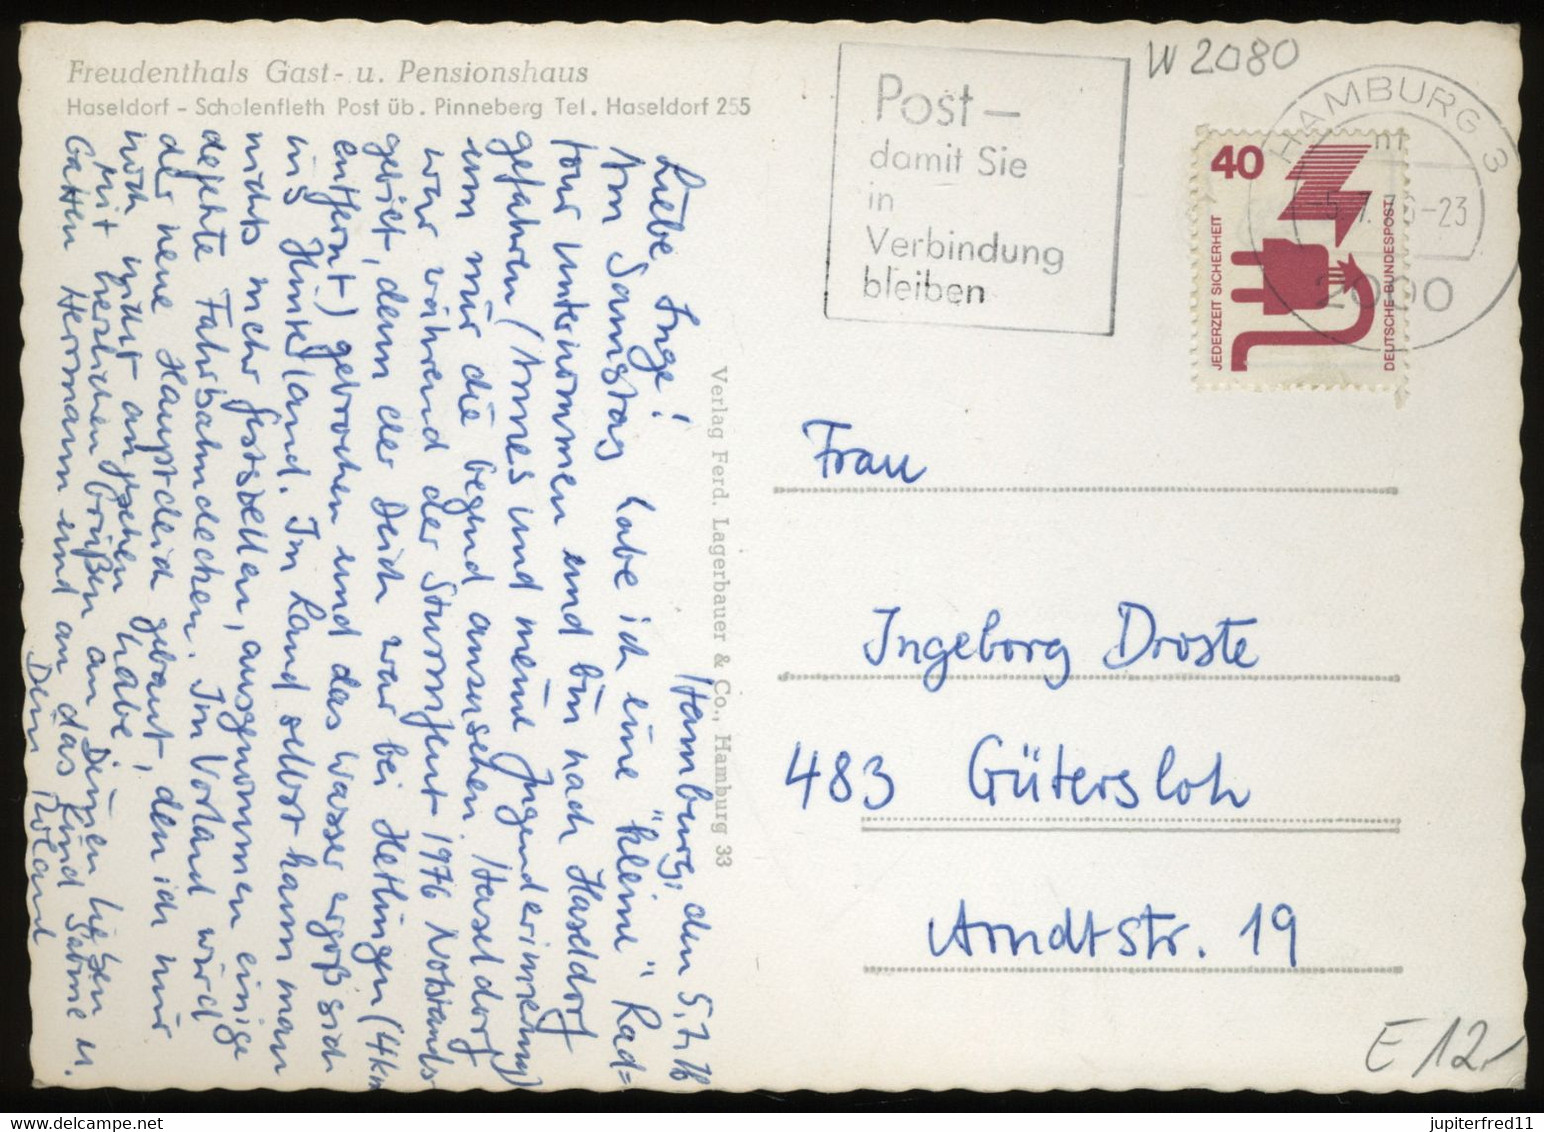 Freudenthals Gast- u. Pensionshaus
Haseldorf – Scholenfleth Post üb. Pinneberg Tel. Haseldorf 255
Hamburg, den 5.7.76
Liebe Inge!
Am Samstag habe ich eine "kleine" Rad=
tour unternommen und bin nach Haseldorf
gefahren (Annes und meine Jugenderinnerung)
um mir die Gegend anzusehen. Haseldorf
war während der Sturmflut 1976 Notstands
gebiet, denn der Deich war bei Hetlingen (4km
entfernt) gebrochen und das Wasser ergoß sich
ins Hinterland. Im Land selbst kann man
nichts mehr feststellen, ausgenommen einige
defekte Fahrbahndecken. Im Vorland wird
der neue Hauptdeich gebaut, den ich mir
noch nicht angesehen habe!
Mit herzlichen Grüßen an Deinen lieben
Gatten Hermann und an das Kind Sabine u.
Dein Roland
Verlag Ferd. Lagerbauer & Co., Hamburg 33
Post –
damit Sie
in
Verbindung
bleiben
W 2080
HAMBURG 3
-23
2000
40
JEDERZEIT SICHERHEIT
DEUTSCHE BUNDESPOST
Frau
Ingeborg Droste
483 Gütersloh
Arndtstr. 19
E 12,-
jupiterfred11